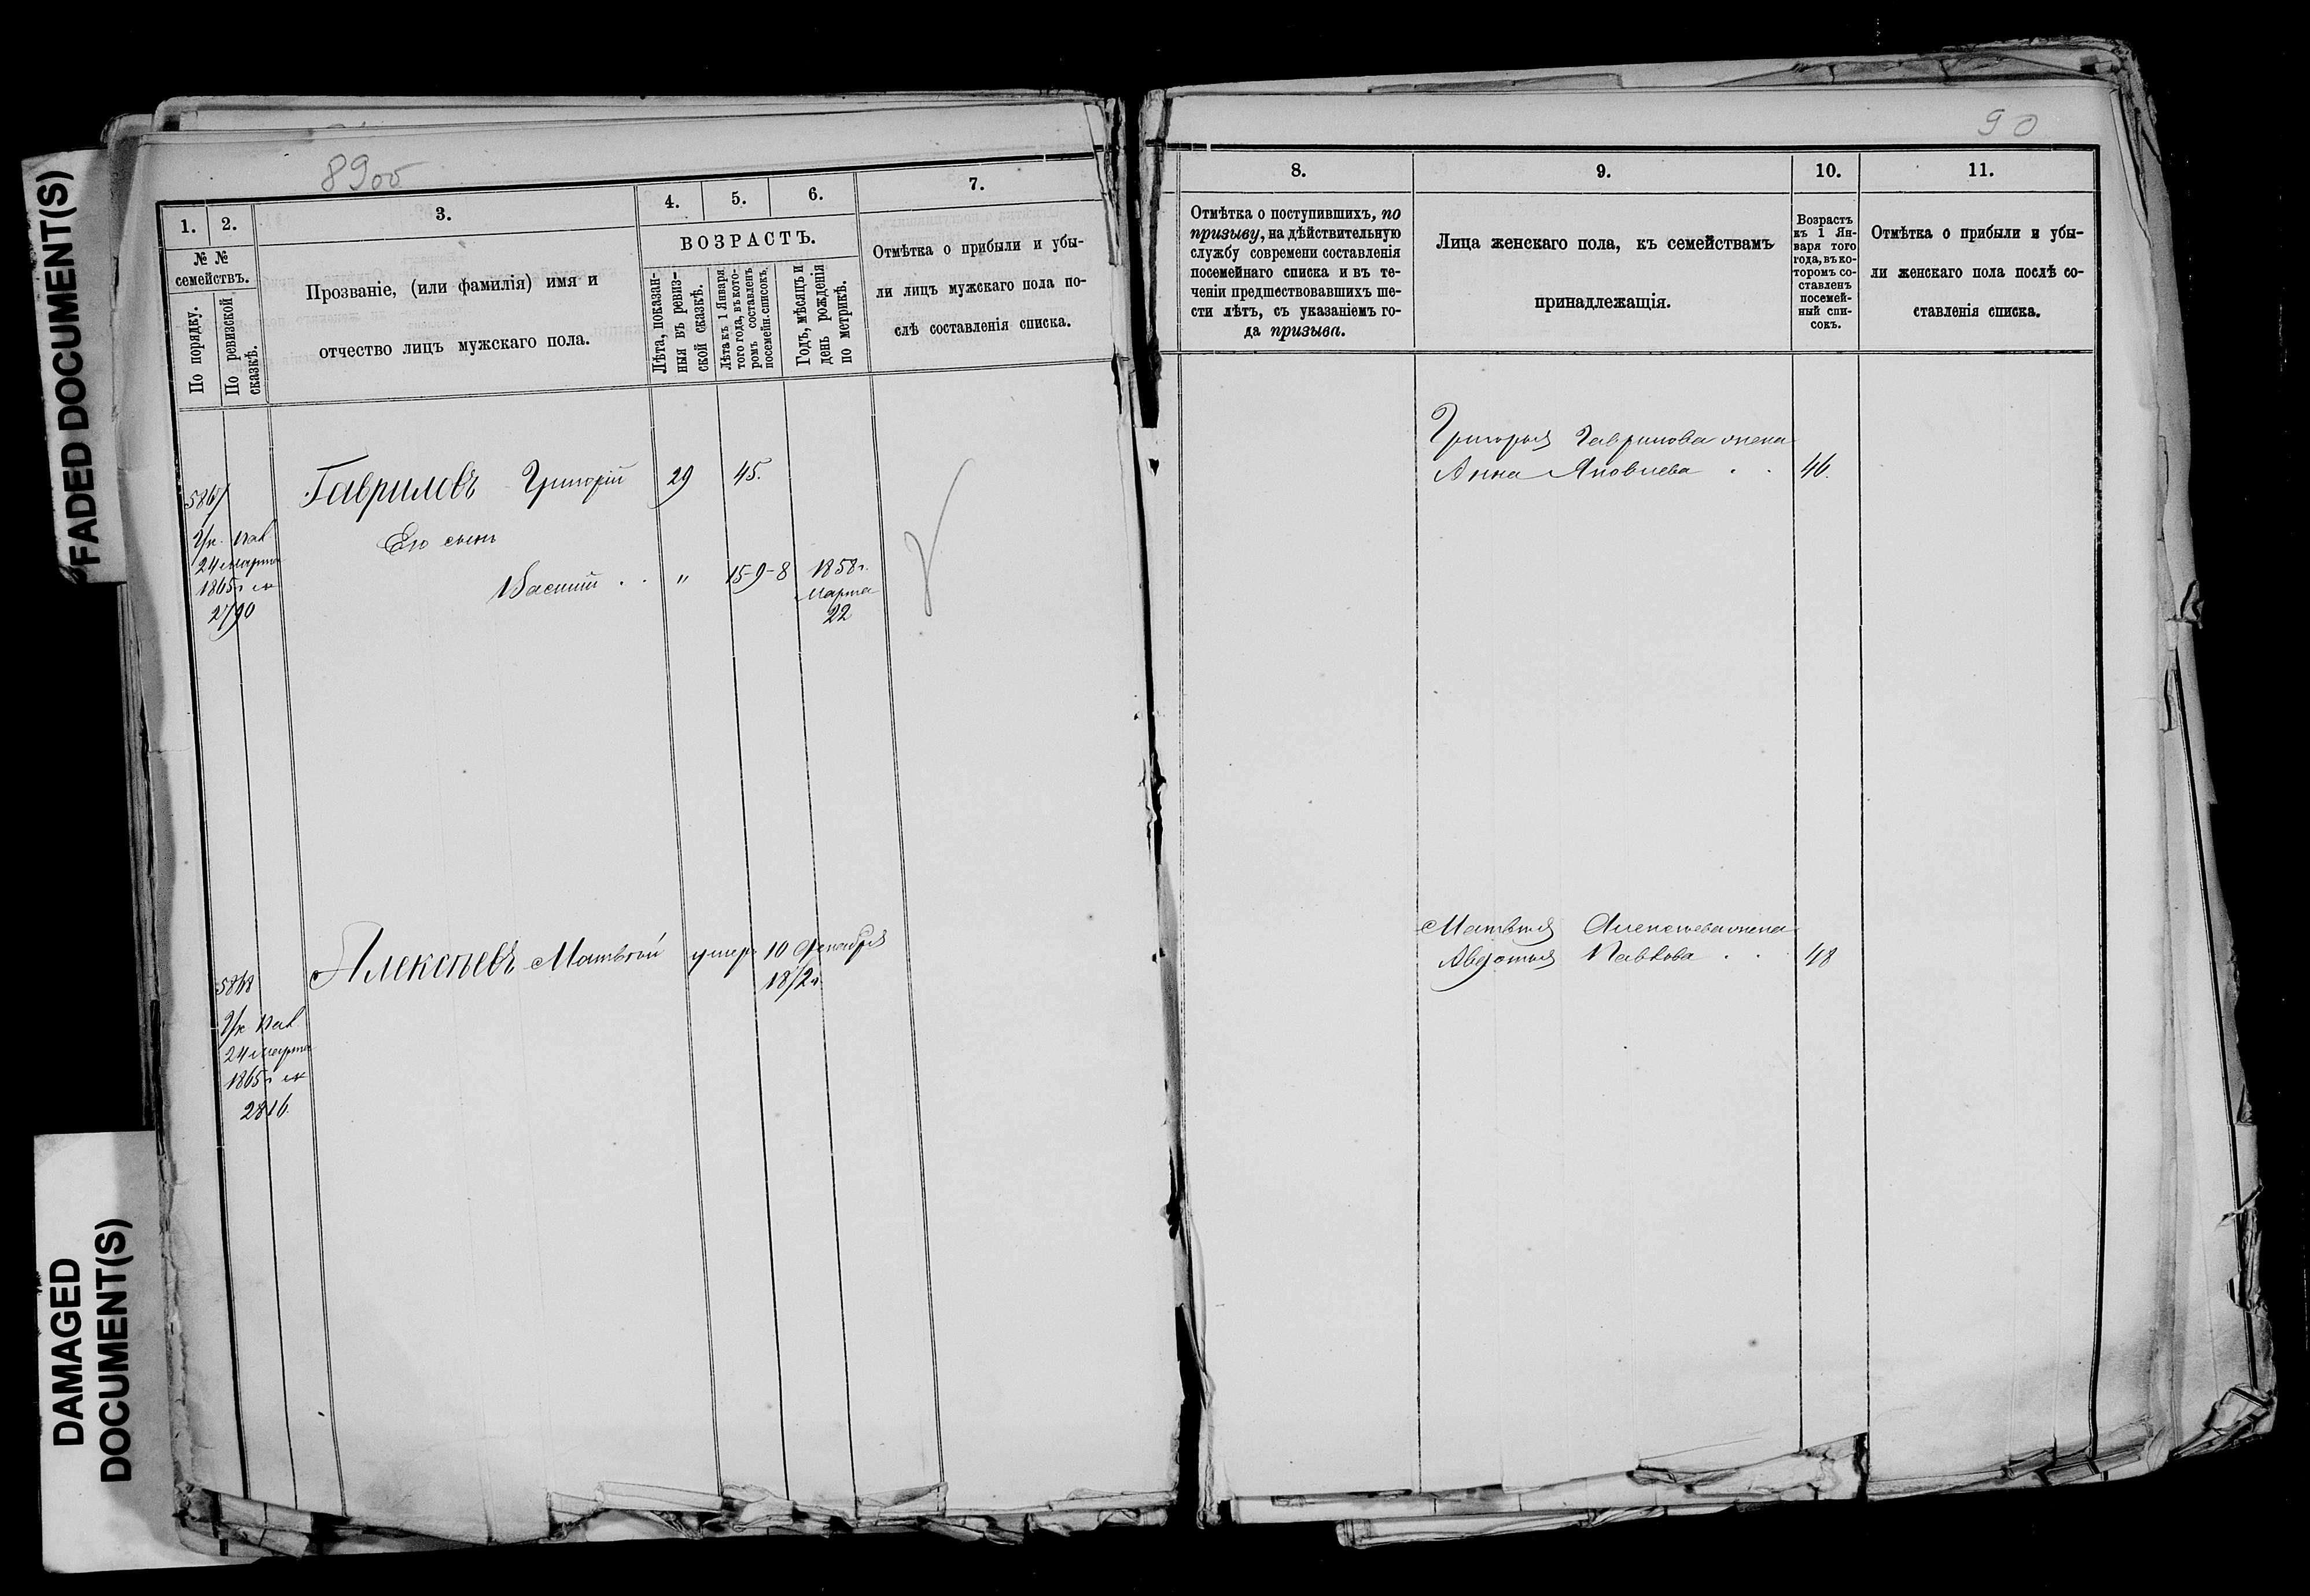 FADED DOCUMENT(S)
DAMAGED
DOCUMENT(S)
89об
1.
2.
3.
4.
5.
6.
7.
№ №
семействъ.
По порядку.
По ревизской
сказкѣ.
Прозваніе, (или фамилія) имя и
отчество лицъ мужскаго пола.
ВОЗРАСТЪ.
Лѣта, показан-
ныя въ ревиз-
ской сказкѣ.
Лѣта къ 1 Января
того года, въ кото-
ромъ составленъ
посемейн. списокъ.
Годъ, мѣсяцъ и
день рожденія
по метрикѣ.
Отмѣтка о прибыли и убы-
ли лицъ мужскаго пола по-
слѣ составленія списка.
5867
24 марта
1865 г №
2790
Гавриловъ Григорій 29 45.
Его сынъ
Василій . . " 15-9-8 1858 г.
марта
22
5868
24 марта
1865 г №
2816
Алексѣевъ Матвѣй умеръ 10 Декабря
1872 г
90
8.
9.
10.
11.
Отмѣтка о поступившихъ, по
призыву, на дѣйствительную
службу современи составленія
посемейнаго списка и въ те-
ченіи предшествовавшихъ ше-
сти лѣтъ, съ указаніемъ го-
да призыва.
Лица женскаго пола, къ семействамъ
принадлежащія.
Возрастъ
къ 1 Ян-
варя того
года, въ ко-
торомъ со-
ставленъ
посемей-
ный спи-
сокъ.
Отмѣтка о прибыли и убы-
ли женскаго пола послѣ со-
ставленія списка.
Григорья Гаврилова жена
Анна Яковлева . . 46.
Матвѣя Алексѣева жена
Авдотья Павлова . . 48